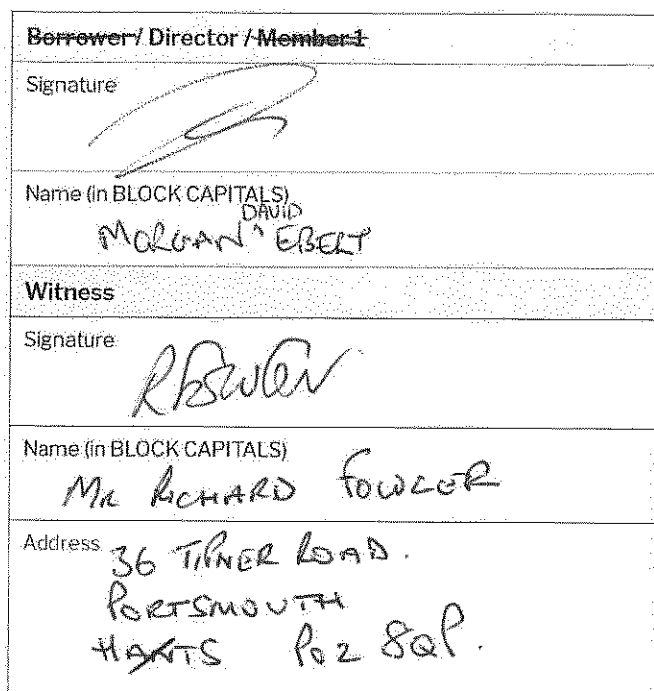 Borrower / Director / Member 1
Signature
Name (in BLOCK CAPITALS)
DAVID
MORGAN ^ EBERT
Witness
Signature
Name (in BLOCK CAPITALS)
MR RICHARD FOWLER
Address 36 TIPNER ROAD.
PORTSMOUTH
HANTS PO2 8QP.